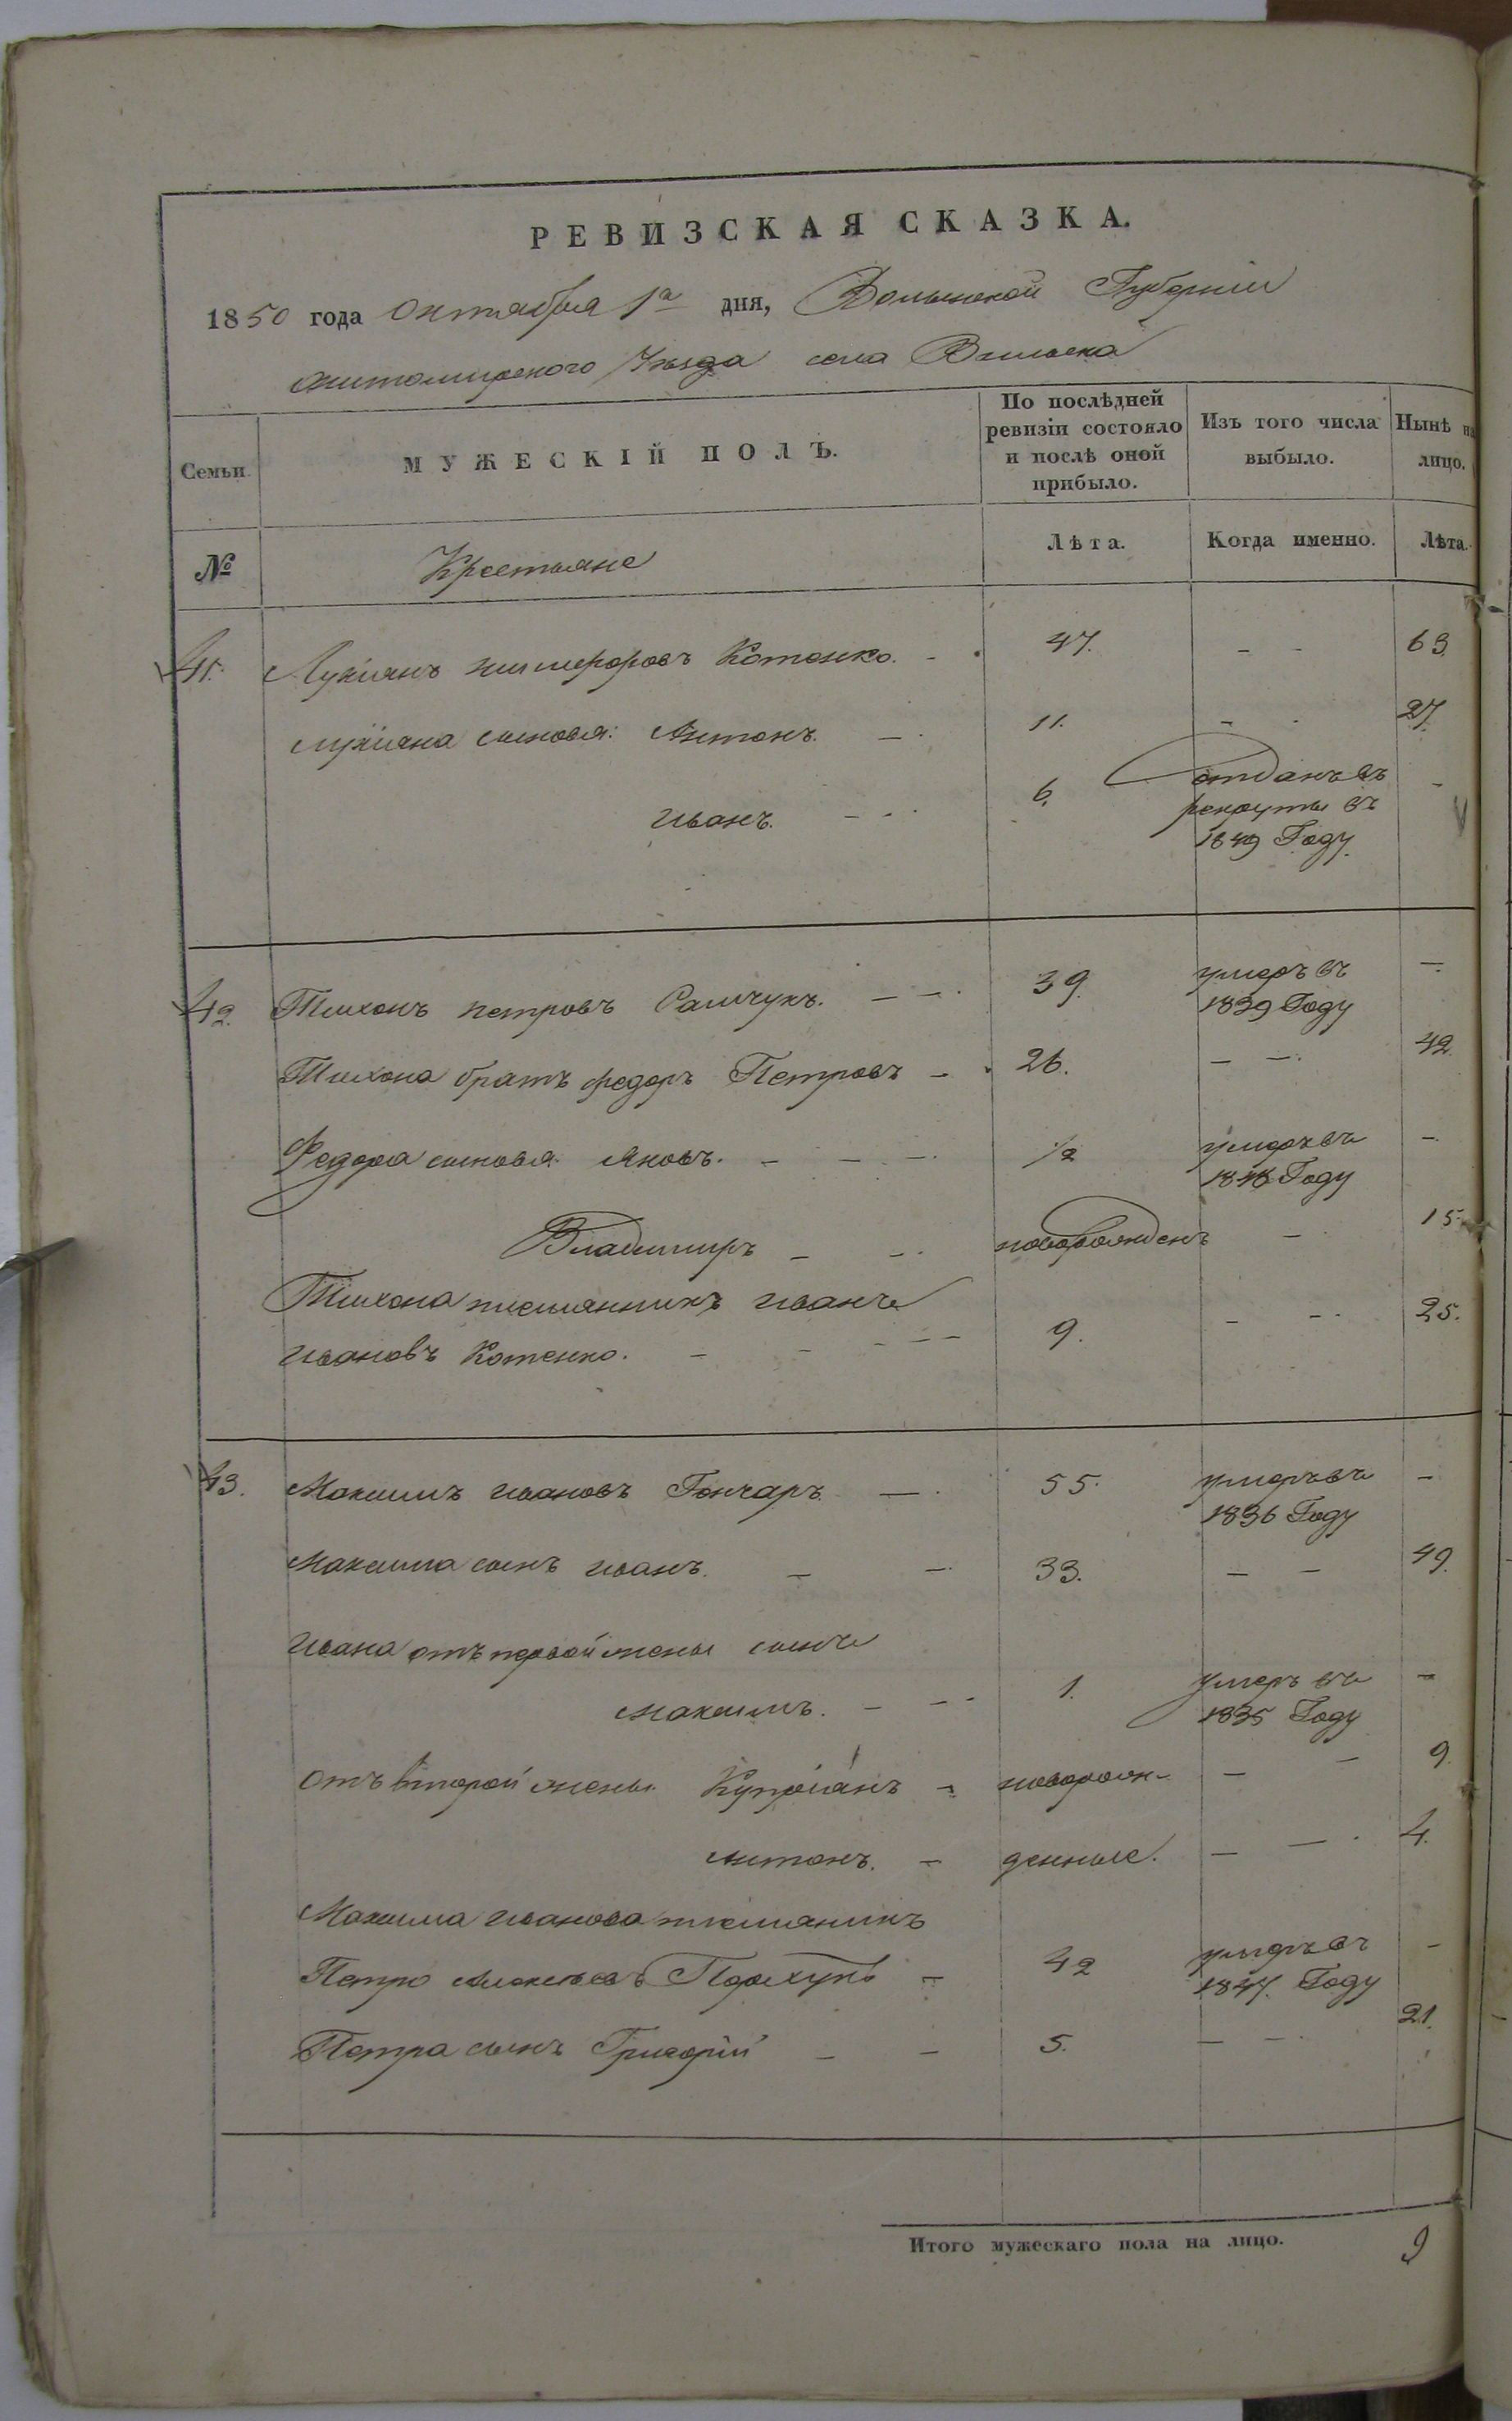 РЕВИЗСКАЯ СКАЗКА.
1850 года Октября 1го дня, Волынской Губерніи
Житомирского Уѣзда села Вильска
Семьи. МУЖЕСКІЙ ПОЛЪ. По послѣдней ревизіи состояло и послѣ оной прибыло. Изъ того числа выбыло. Нынѣ на лицо.
№ Крестьяне Лѣта. Когда именно. Лѣта.
41. Лукіянъ Никифоровъ Котенко. 47. - - 63.
Лукіяна сыновья: Антонъ. 11. - - 27.
Иванъ. 6. отданъ въ рекруты въ 1849 Году. -
42. Тихонъ Петровъ 39. умеръ въ 1839 Году -
Тихона братъ Федоръ Петровъ 26. - - 42.
Федора сыновья: Яковъ. 1/2 умеръ въ Году -
Владимиръ новорожденъ - 15.
Тихона племянникъ Иванъ
Ивановъ Котенко. 9. - - 25.
43. Максимъ Ивановъ Гончаръ. 55. умеръ въ 1836 Году -
Максима сынъ Иванъ. 33. - - 49.
Ивана отъ первой жены сынъ
Максимъ. 1. умеръ въ 1835 Году -
отъ второй жены Купріанъ новорож- - - 9.
Антонъ. денные. - - 4.
Максима Иванова племяникъ
Петро Алексѣевъ 42 умеръ въ 1847. Году -
Петра сынъ Григорій 5. - - 21.
Итого мужескаго пола на лицо. 9